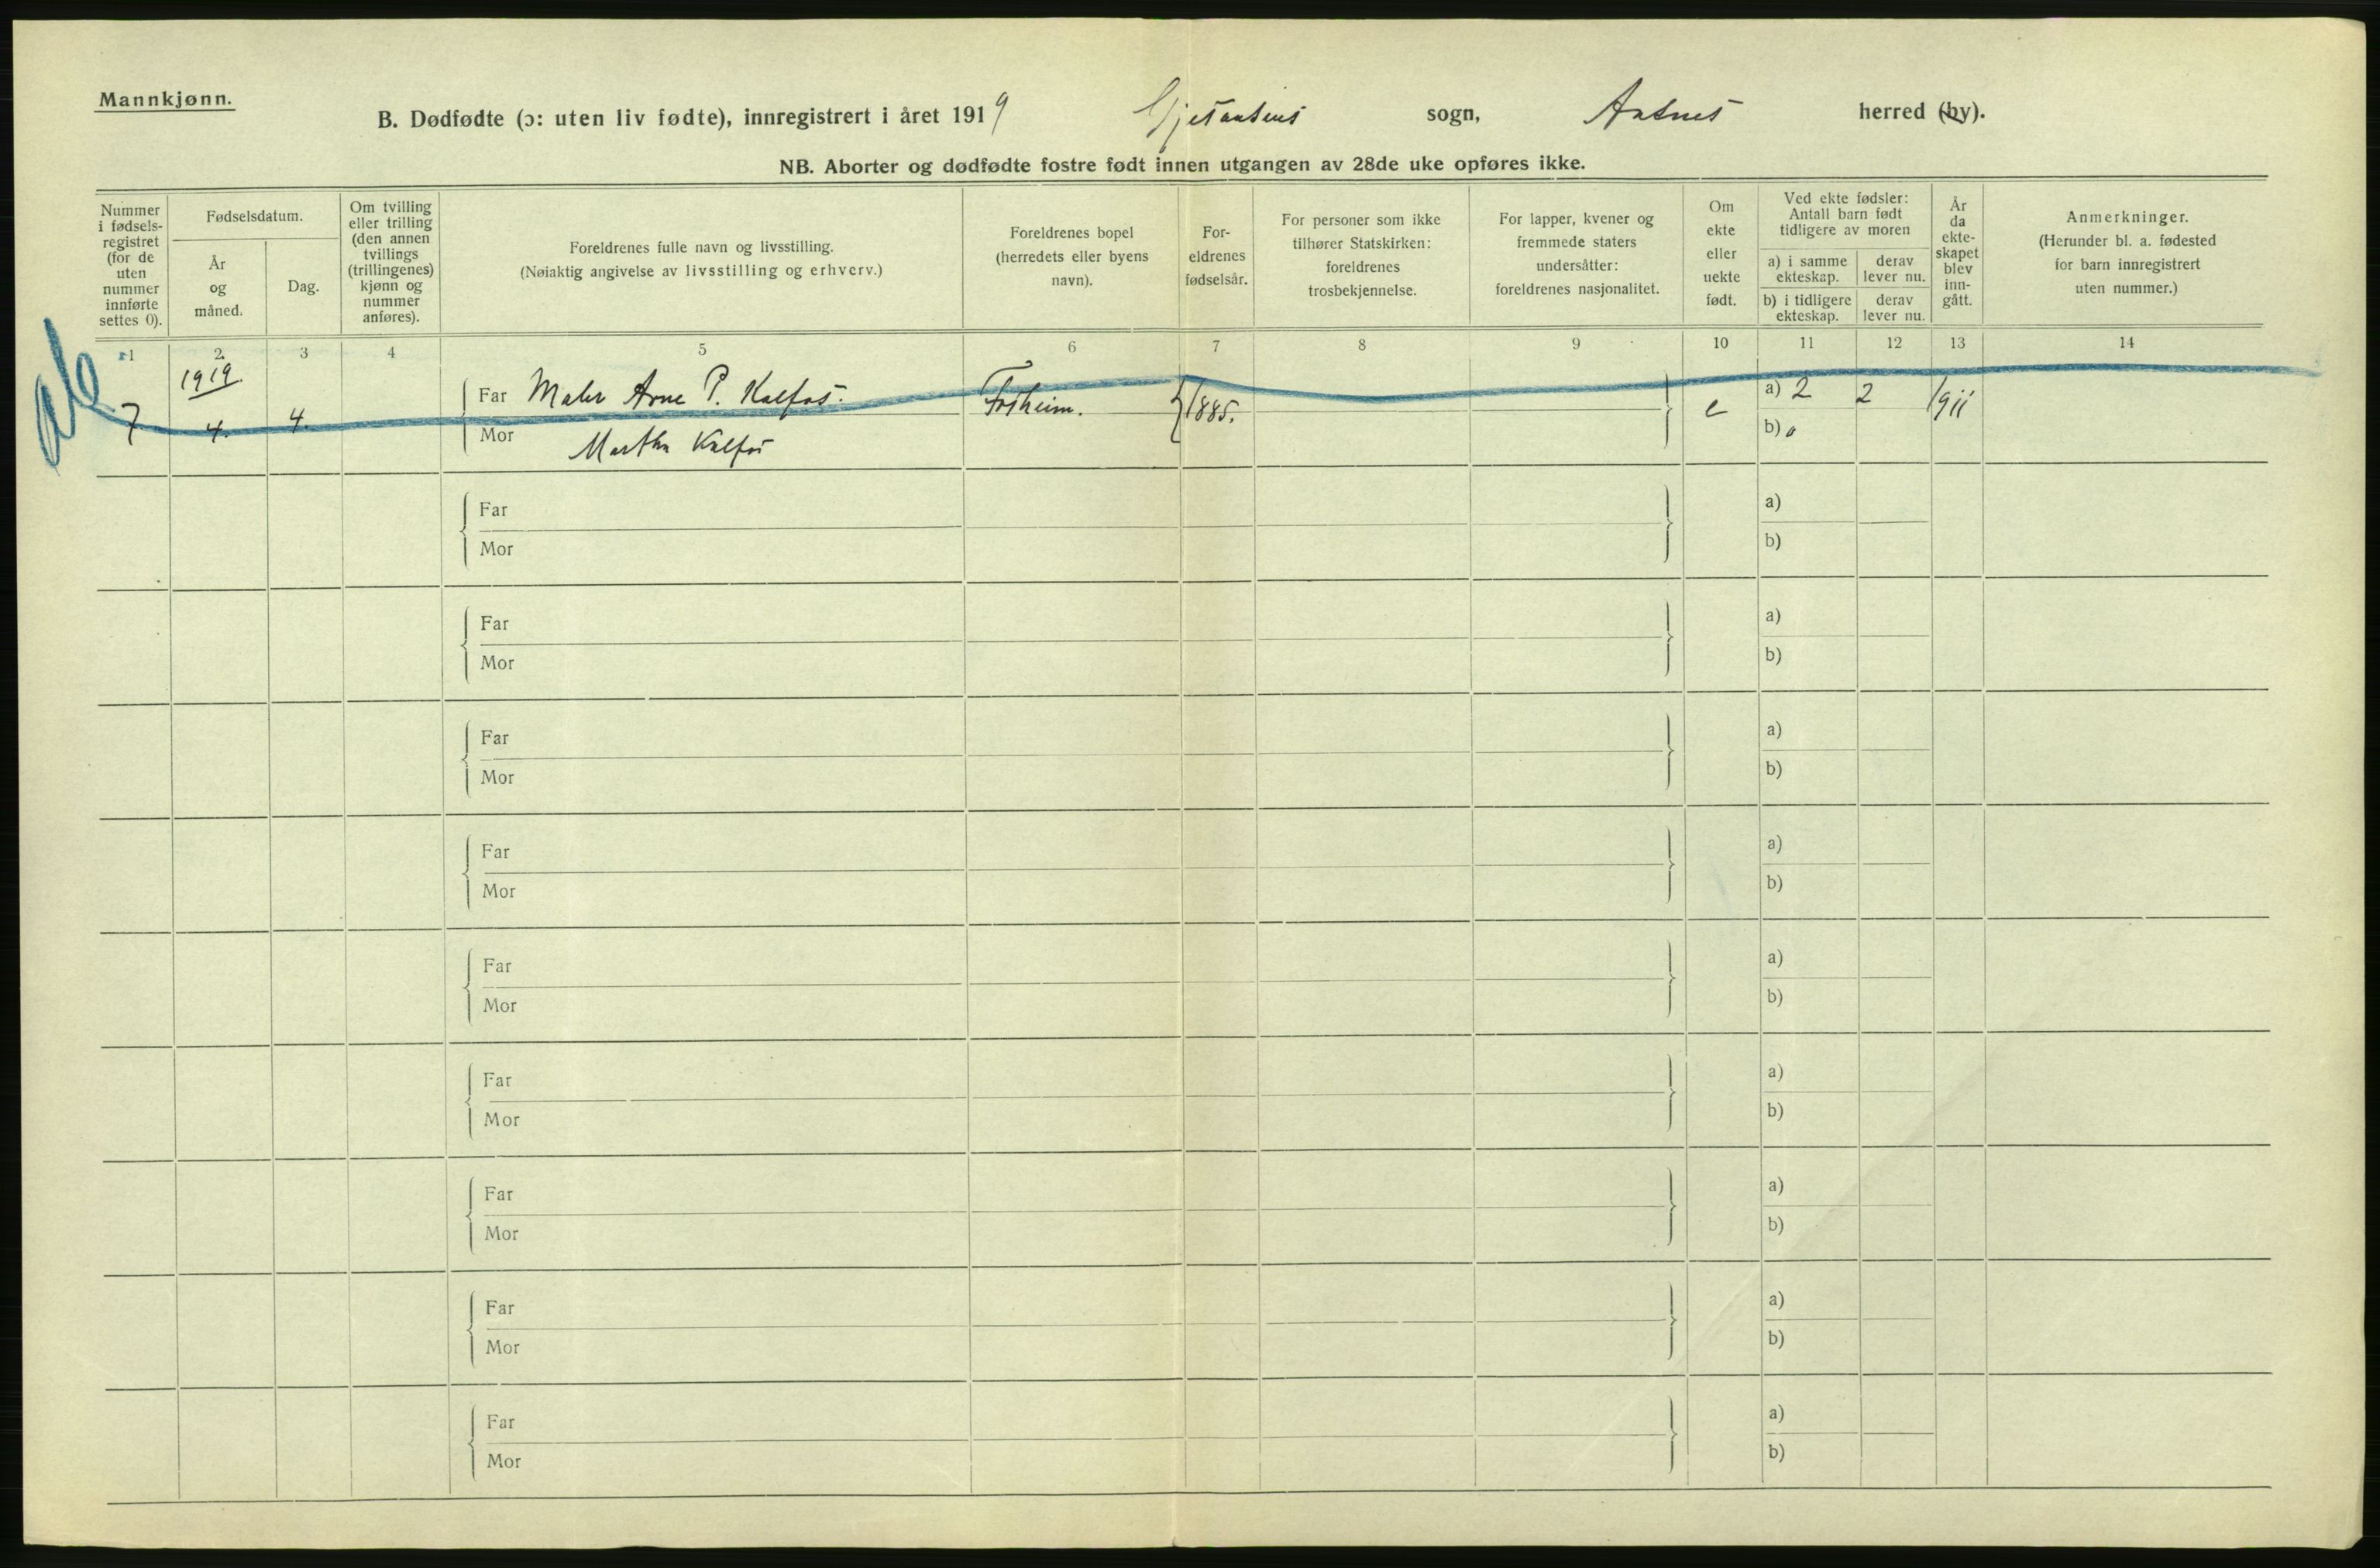 Mannkjønn.
B. Dødfødte (ɔ: uten liv fødte), innregistrert i året 1919 sogn, herred (by).
NB. Aborter og dødfødte fostre født innen utgangen av 28de uke opføres ikke.
Nummer
i fødsels-
registret
(for de
uten
nummer
innførte
settes 0).
Fødselsdatum.
År
og
måned.
Dag.
Om tvilling
eller trilling
(den annen
tvillings
(trillingenes)
kjønn og
nummer
anføres).
Foreldrenes fulle navn og livsstilling.
(Nøiaktig angivelse av livsstilling og erhverv.)
Foreldrenes bopel
(herredets eller byens
navn).
For-
eldrenes
fødselsår.
For personer som ikke
tilhører Statskirken:
foreldrenes
trosbekjennelse.
For lapper, kvener og
fremmede staters
undersåtter:
foreldrenes nasjonalitet.
Om
ekte
eller
uekte
født.
Ved ekte fødsler:
Antall barn født
tidligere av moren
a) i samme
ekteskap.
derav
lever nu.
b) i tidligere
ekteskap.
derav
lever nu.
År
da
ekte-
skapet
blev
inn-
gått.
Anmerkninger.
(Herunder bl. a. fødested
for barn innregistrert
uten nummer.)
1 2. 3 4 5 6 7 8 9 10 11 12 13 14
1919.
7 4. 4.
Far Maler Arne P. Kalfos. 1885. e a) 2 2 1911
Mor Martha Kalfos b) 0
Far a)
Mor b)
Far a)
Mor b)
Far a)
Mor b)
Far a)
Mor b)
Far a)
Mor b)
Far a)
Mor b)
Far a)
Mor b)
Far a)
Mor b)
Far a)
Mor b)